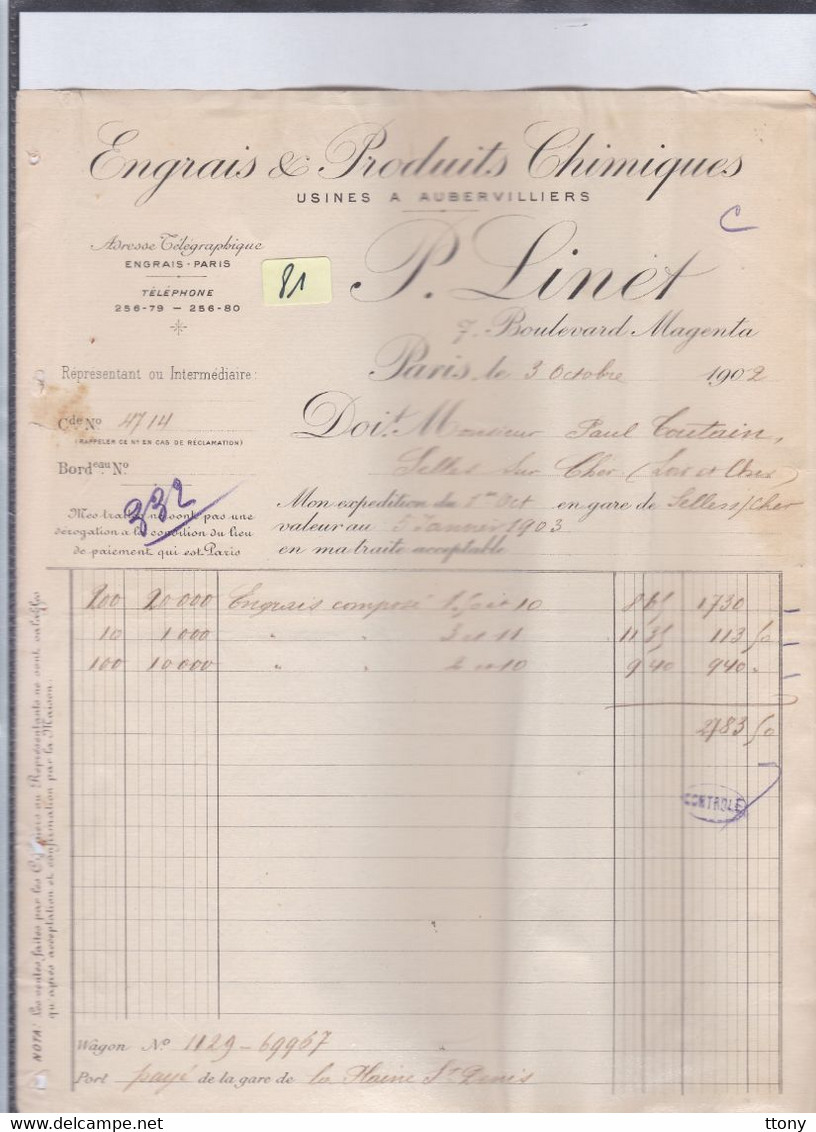 Engrais & Produits Chimiques
USINES A AUBERVILLIERS
C
Adresse Télégraphique
ENGRAIS-PARIS
TÉLÉPHONE
256-79 — 256-80
81
P. Linet
7, Boulevard Magenta
Paris, le 3 Octobre 1902
Représentant ou Intermédiaire:
Cde No 4714
(RAPPELER CE No EN CAS DE RÉCLAMATION)
Bordeau No
Doit Monsieur Paul Coutain,
Selles sur Cher (Loir et Cher)
Mon expedition du 1er Oct en gare de Selles s/Cher
valeur au 5 Janvier 1903
en ma traite acceptable
332
Mes traites ne sont pas une
dérogation a la condition du lieu
de paiement qui est Paris
200 20 000 Engrais composé 10 8 65 1730
10 1 000 " " 3 et 11 11 35 113 50
100 10 000 " " 2 et 10 9 40 940 "
2783 50
CONTROLE
Wagon No 1129-69967
Port payé de la gare de la Plaine St Denis
NOTA: Les ventes faites par les Courtiers ou Représentants ne sont valables
qu'après acceptation et confirmation par la Maison.
ttony